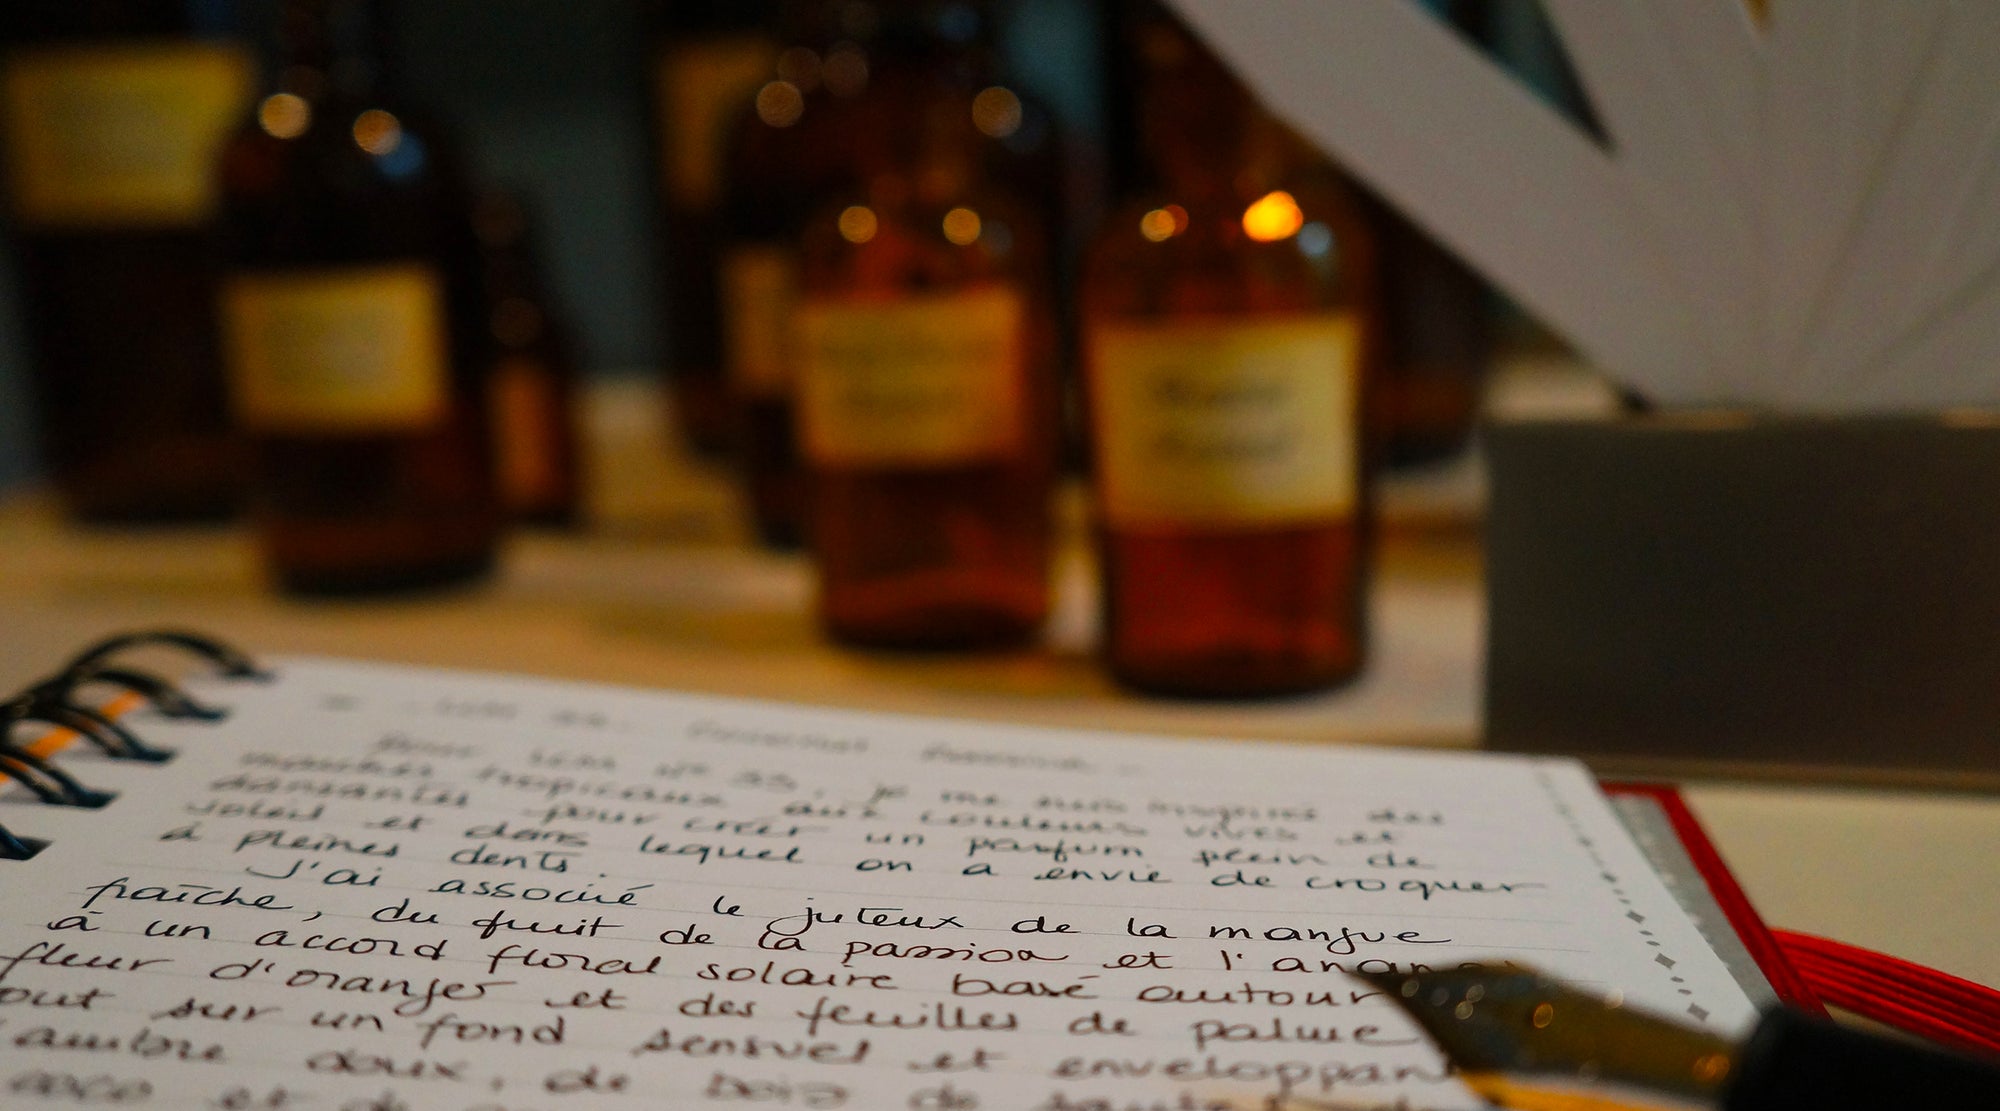 je me suis inspiré des
tropicaux aux couleurs vives et
dansantes pour créer un parfum plein de
soleil et dans lequel on a envie de croquer
à pleines dents.
J'ai associé le juteux de la mangue
fraîche, du fruit de la passion et l'
à un accord floral solaire basé autour
fleur d'oranger et des feuilles de palme
out sur un fond sensuel et enveloppan
ambre doux, de bois de
coco et